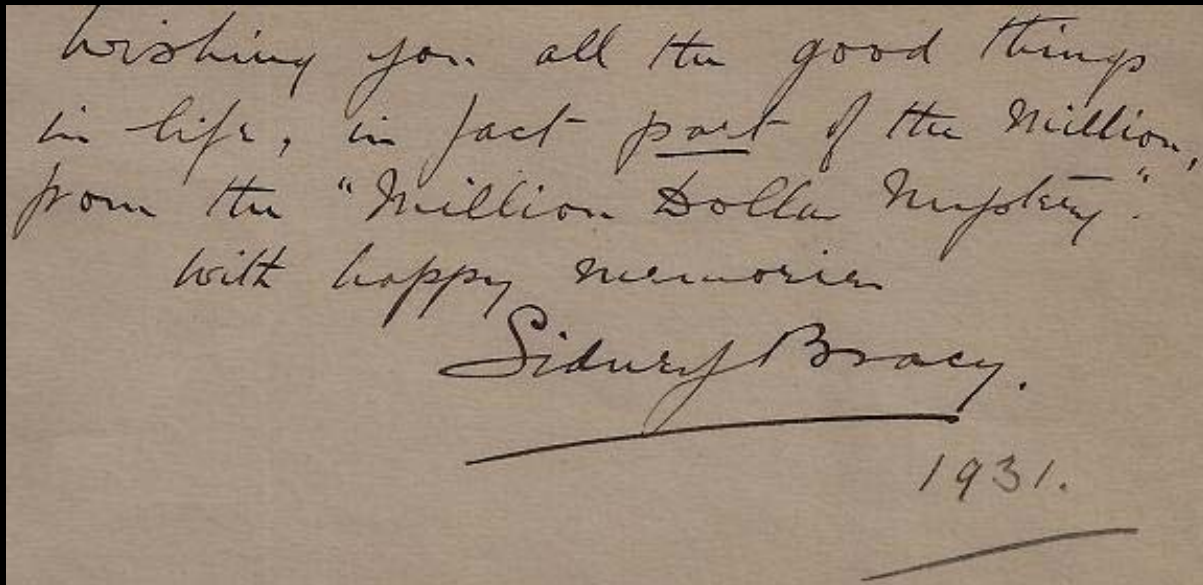 Wishing you all the good things
in life, in fact part of the Million,
from the "Million Dollar Mystery".
With happy memories
Sidney Bracy.
1931.